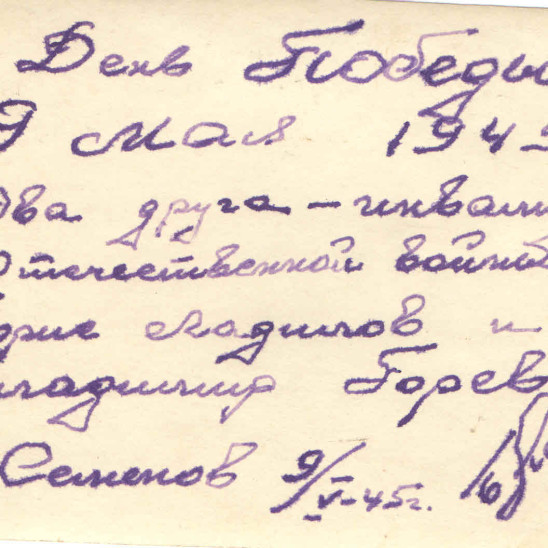 День Победы
9 мая 1945
Два друга – инвали
Отечественной войны
Борис Мадимов и
Владимир Горев
Семенов 9/V-45г.